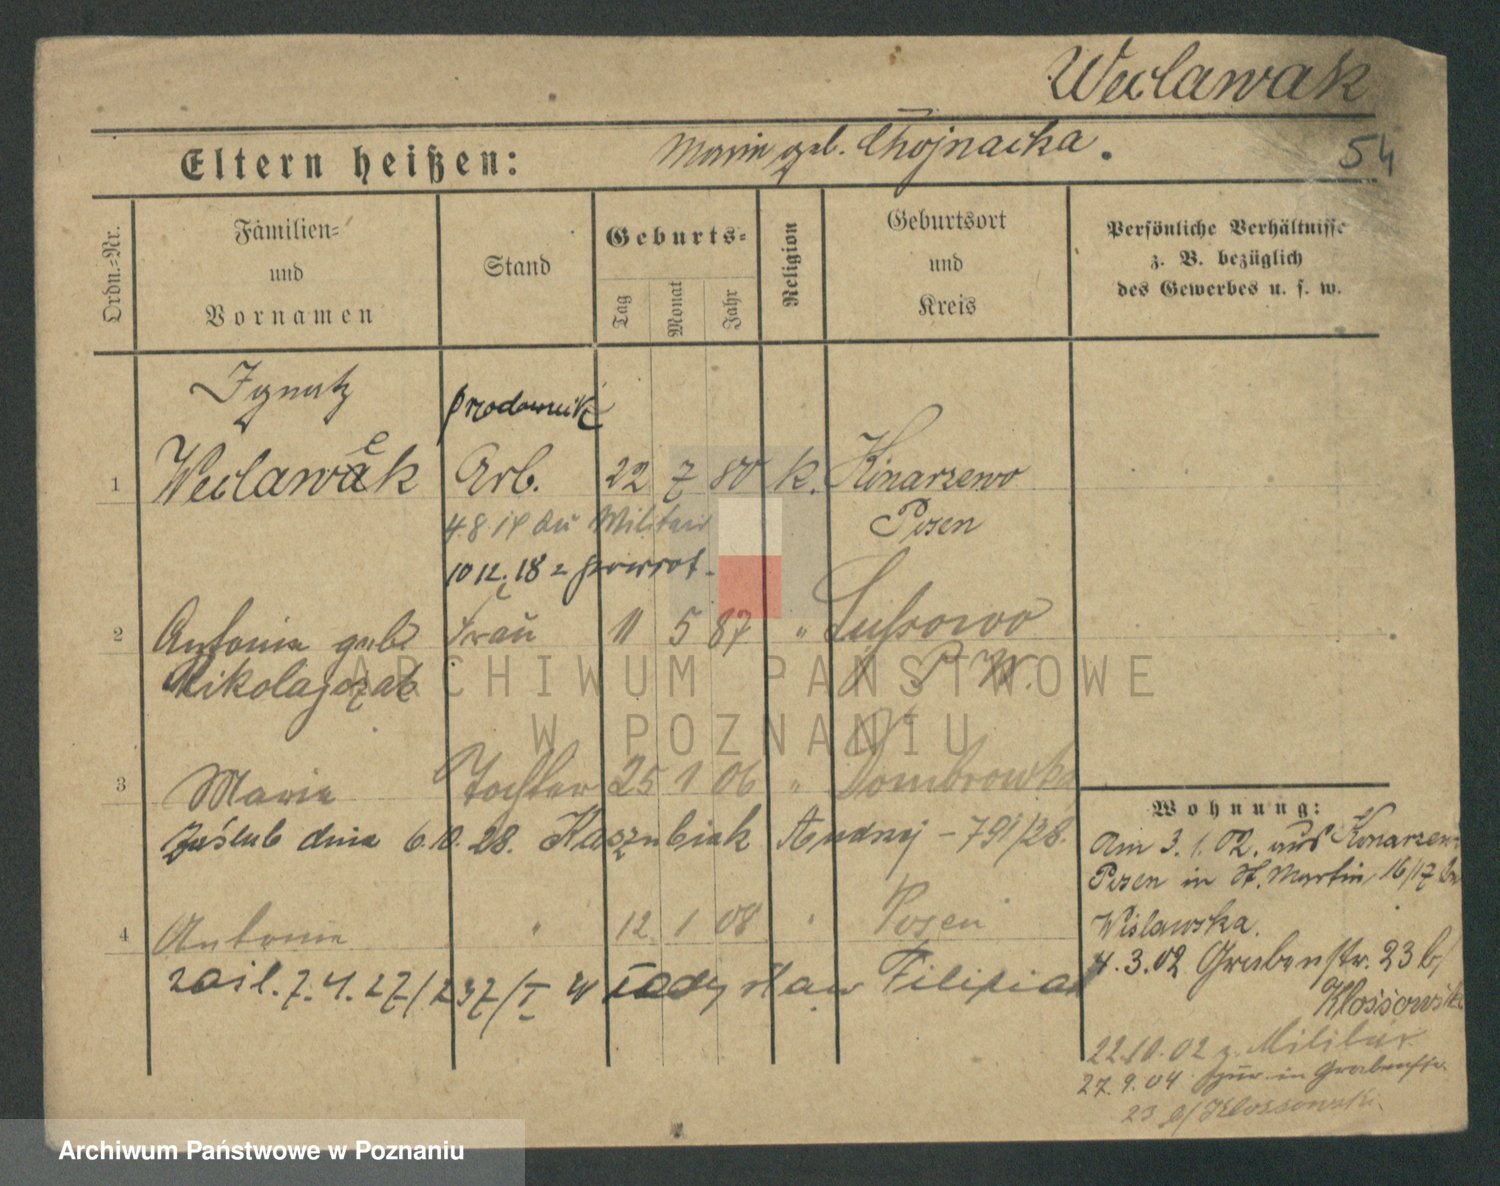 Weclawak
54
Eltern heißen: Marin geb. Chojnacka.
Ordn.-Nr.
Familien- und Vornamen
Stand
Geburts-
Tag Monat Jahr
Religion
Geburtsort und Kreis
Persönliche Verhältnisse
z. B. bezüglich
des Gewerbes u. s. w.
Ignatz
przodownik
e
1 Weclawak Arb. 22 7 80 k. Konarzewo
4.8.14 zu Militair Posen
10 12. 18 = powrot.
2 Antonie geb. Frau 11 5 87 " Lussowo
Nikolajczak P. W.
3 Marie Tochter 25 1 06 " Dombrowka
Zaślub dnia 6.10.28. Kasznbiak Andrzej – 791/28.
4 Antonie " 12 1 08 " Posen
zaśl. 7.4.27/237/I Władysław Filipiak
Wohnung:
Am 3.1.02. aus Konarzewo
Posen in St. Martin 16/17 bei
Wislawska.
4.3.02 Grabenstr. 23 b/
Klossowski
22.10.02 z. Militär
27.9.04 zur. in Grabenstr.
23 b/Klossowski
ARCHIWUM PAŃSTWOWE
W POZNANIU
Archiwum Państwowe w Poznaniu